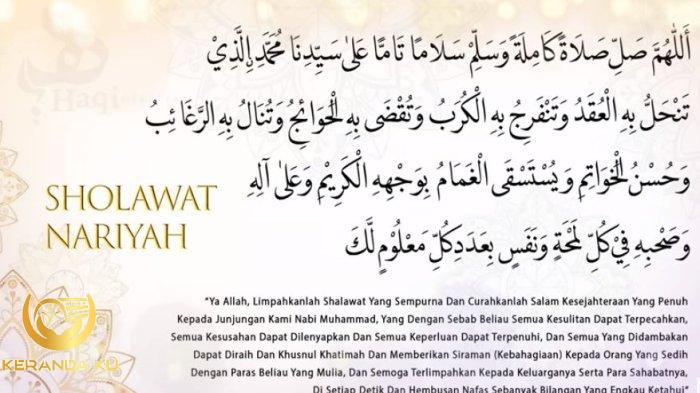 اَللّٰهُمَّ صَلِّ صَلَاةً كَامِلَةً وَسَلِّمْ سَلَامًا تَامًّا عَلٰى سَيِّدِنَا مُحَمَّدِ ࣙالَّذِيْ
تَنْحَلُّ بِهِ الْعُقَدُ وَتَنْفَرِجُ بِهِ الْكُرَبُ وَتُقْضَى بِهِ الْحَوَائِجُ وَتُنَالُ بِهِ الرَّغَائِبُ
وَحُسْنُ الْخَوَاتِمِ وَيُسْتَسْقَى الْغَمَامُ بِوَجْهِهِ الْكَرِيْمِ وَعَلٰى آلِهِ
وَصَحْبِهِ فِيْ كُلِّ لَمْحَةٍ وَنَفَسٍ بِعَدَدِ كُلِّ مَعْلُوْمٍ لَّكَ
SHOLAWAT
NARIYAH
"Ya Allah, Limpahkanlah Shalawat Yang Sempurna Dan Curahkanlah Salam Kesejahteraan Yang Penuh
Kepada Junjungan Kami Nabi Muhammad, Yang Dengan Sebab Beliau Semua Kesulitan Dapat Terpecahkan,
Semua Kesusahan Dapat Dilenyapkan Dan Semua Keperluan Dapat Terpenuhi, Dan Semua Yang Didambakan
Dapat Diraih Dan Khusnul Khatimah Dan Memberikan Siraman (Kebahagiaan) Kepada Orang Yang Sedih
Dengan Paras Beliau Yang Mulia, Dan Semoga Terlimpahkan Kepada Keluarganya Serta Para Sahabatnya,
Di Setiap Detik Dan Hembusan Nafas Sebanyak Bilangan Yang Engkau Ketahui"
KERANDA KU